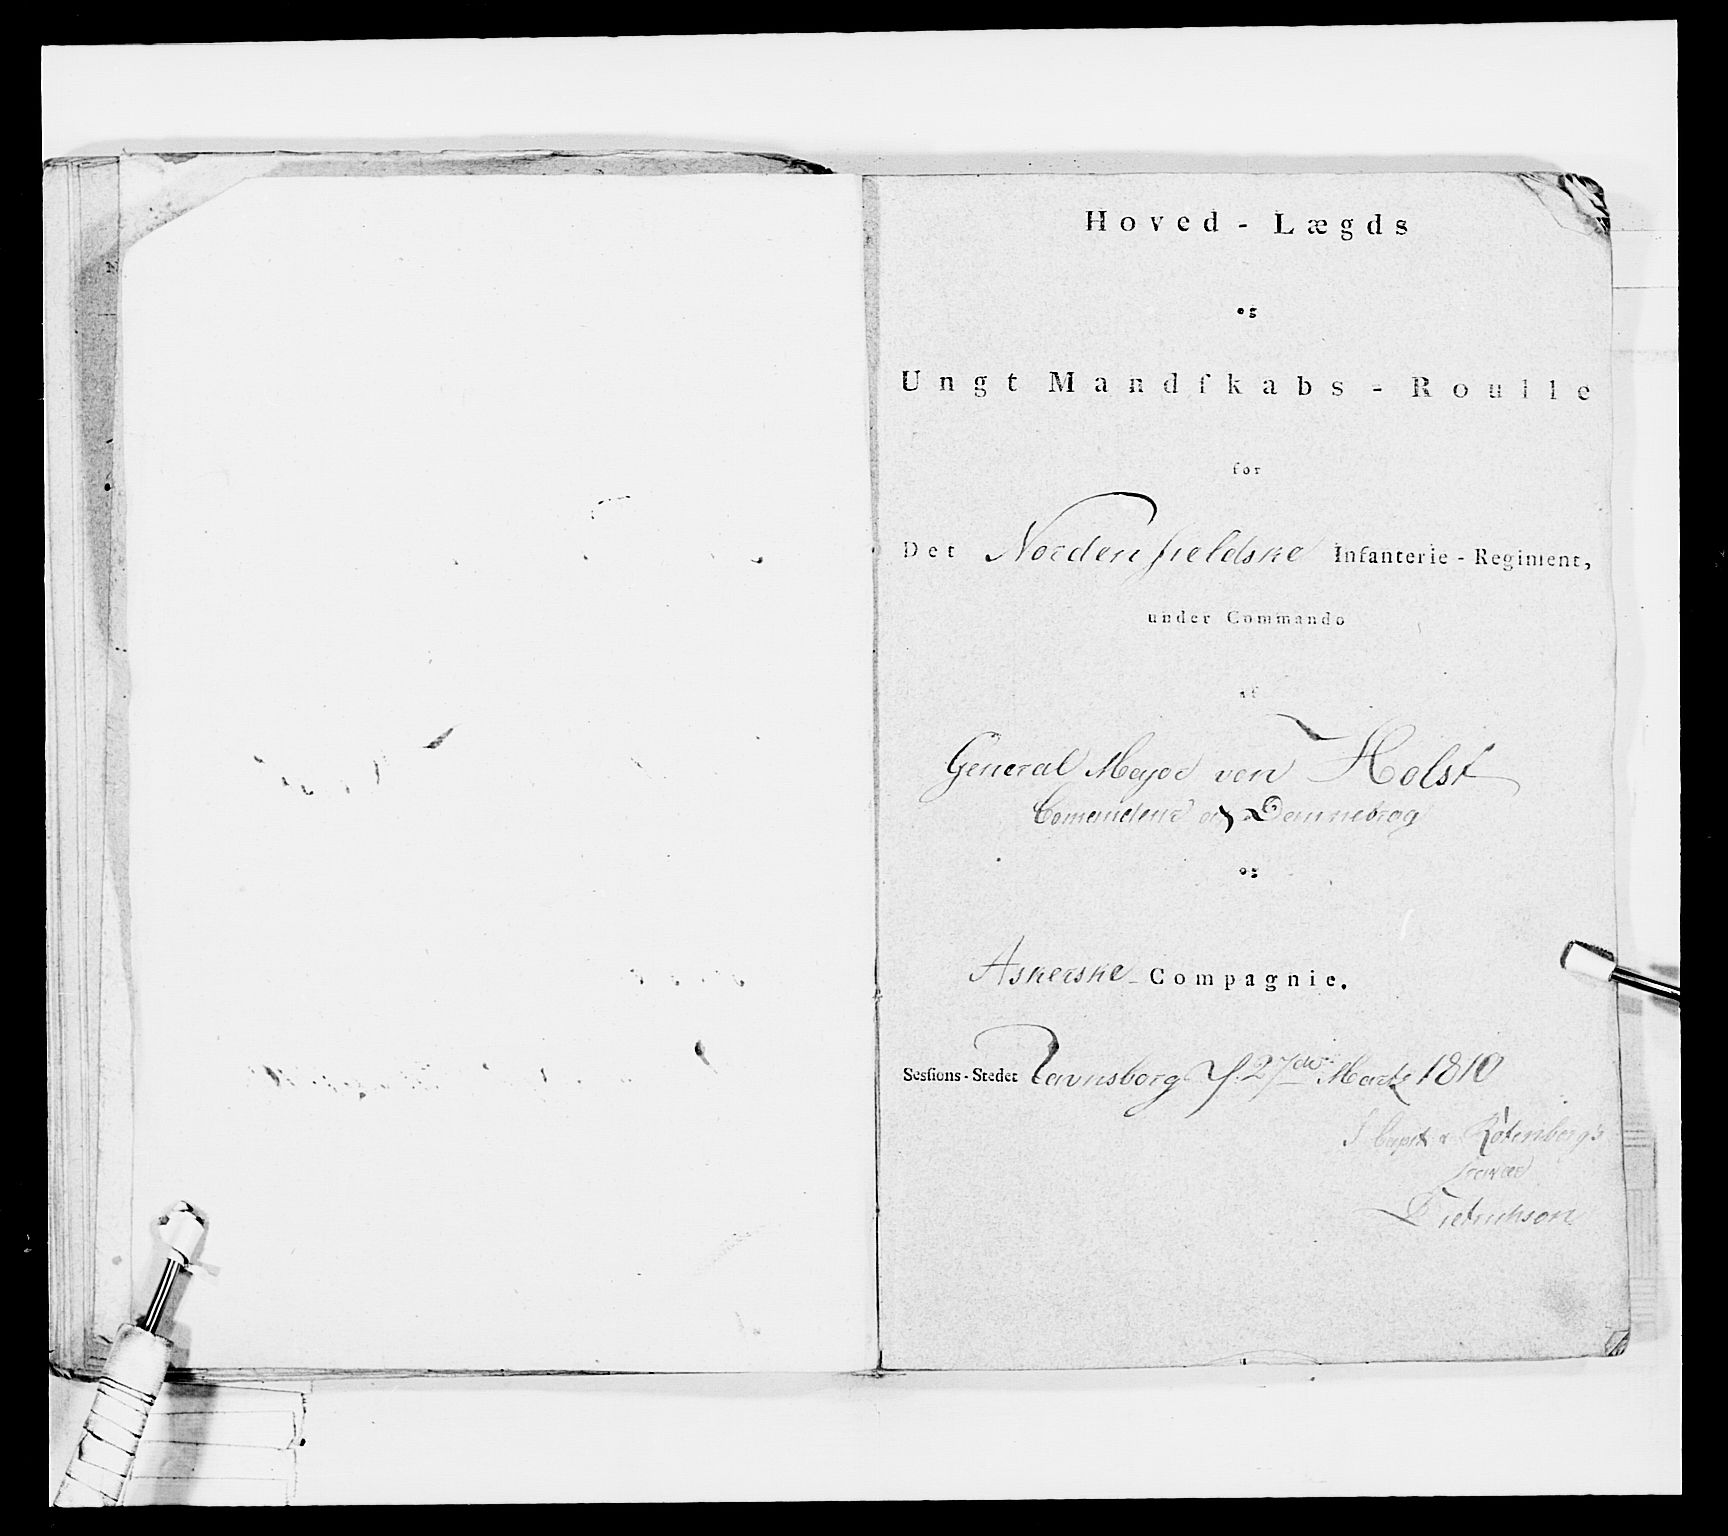 Hoved-Lægds
og
Ungt Mandſkabs-Roulle
for
Det Nordenfieldske Infanterie-Regiment,
under Commando
af
General Major von Holst
Comendeur af Dannebrog
og
Askerske Compagnie.
Sesſions-Stedet Ravnsborg d. 27de Martz 1810
I Capit v Rotenberg's
fravær
Dietrichson